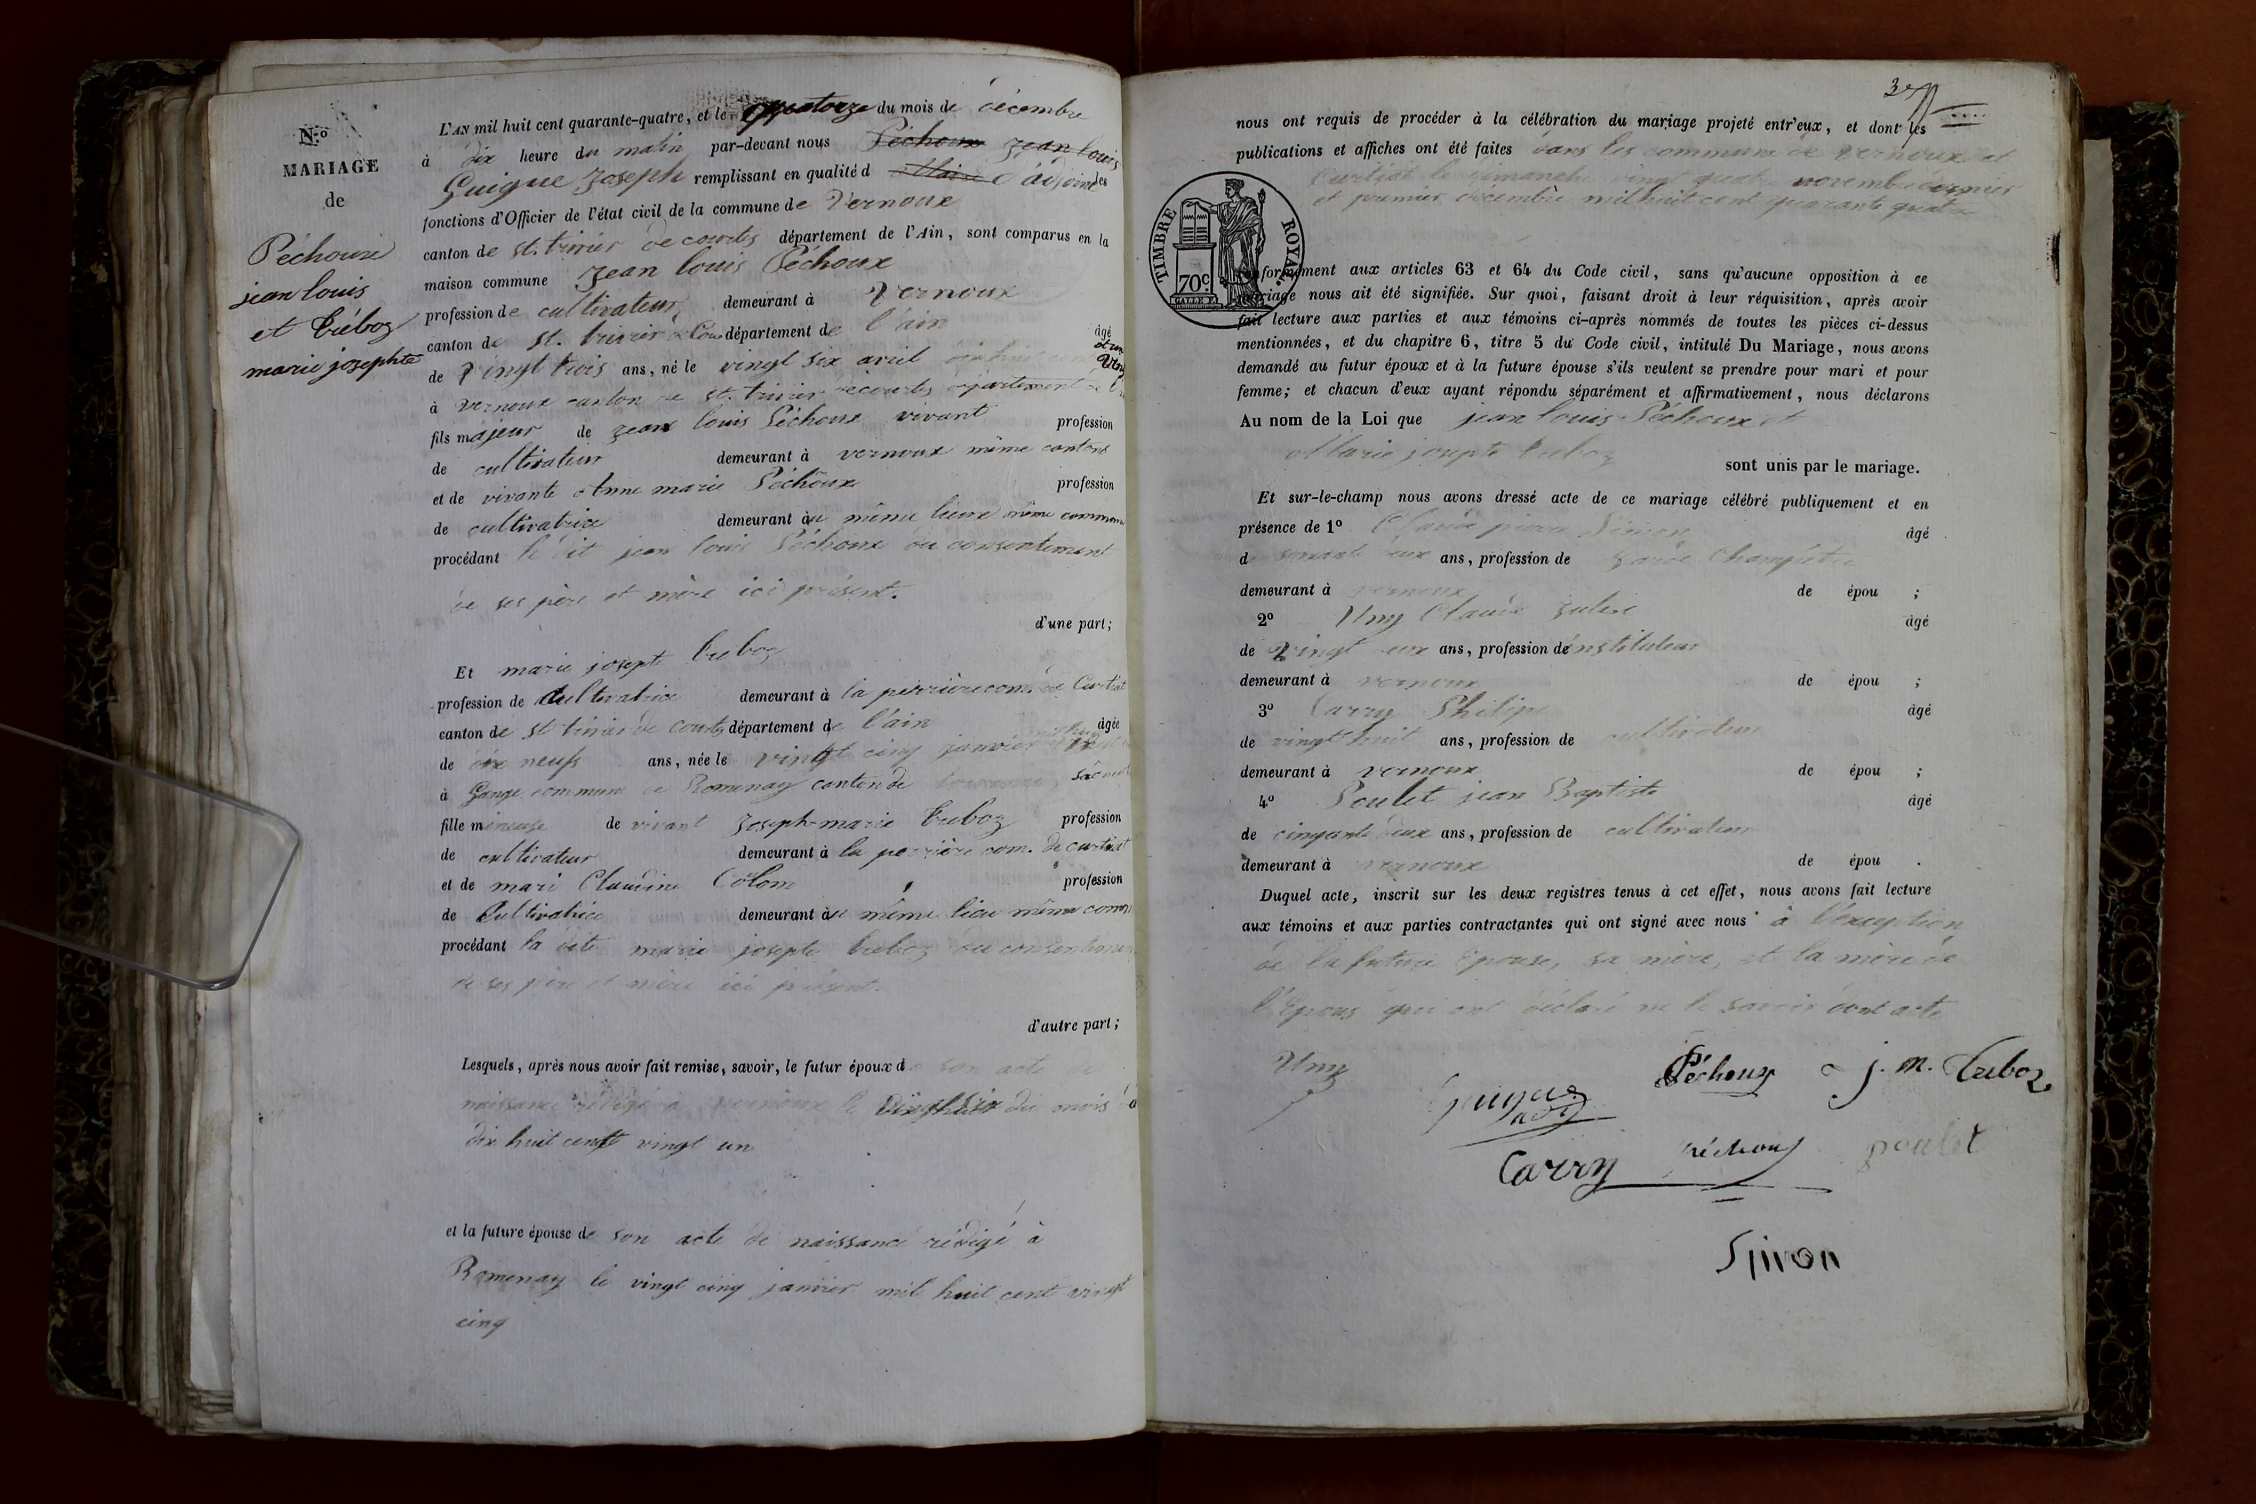 N.o
MARIAGE
de
Péchoux
jean louis
et tréboz
marie josephte
L'AN mil huit cent quarante-quatre, et le quatorze du mois de décembre
à dix heure du matin par-devant nous Péchoux Jean louis
Guigue Joseph remplissant en qualité d Maire d'adjoint les
fonctions d'Officier de l'état civil de la commune de Vernoux
canton de st. trivier de courtes département de l'Ain, sont comparus en la
maison commune Jean louis Péchoux
profession de cultivateur demeurant à Vernoux
canton de st. trivier de Cou département de l'ain âgé
de Vingt trois ans, né le vingt six avril
à Vernoux canton de st. trivier de courtes département de
fils majeur de Jean louis Péchoux vivant profession
de cultivateur demeurant à vernoux même canton
et de vivante Anne marie Péchoux profession
de cultivatrice demeurant au même lieux même commune
procédant le dit jean louis Péchoux du consentement
de ses père et mère ici présent.
d'une part;
Et marie josepte treboz
profession de cultivatrice demeurant à la perrière com. de Curtiat
canton de st trivier de courtes département de l'ain âgée
de dix neufs ans, née le vingt cinq janvier
à Gange commune de Romenay canton de
fille mineuse de vivant Joseph-marie treboz profession
de cultivateur demeurant à la perrière com. de curtiat
et de mari Claudine Colom profession
de Cultivatrice demeurant au même lieu même comm
procédant la dite marie josepte treboz du consentement
de ses père et mère ici présent.
d'autre part;
Lesquels, après nous avoir fait remise, savoir, le futur époux de son acte de
naissance rédigé à vernoux le vingt six du mois d
dix huit cent vingt un
et la future épouse de son acte de naissance rédigé à
Romenay le vingt cinq janvier mil huit cent vingt
cinq
nous ont requis de procéder à la célébration du mariage projeté entr'eux, et dont les
publications et affiches ont été faites dans les commune de vernoux et
Curtiat le dimanche vingt quatre novembre dernier
et premier décembre mil huit cent quarante quatre
TIMBRE ROYAL
70c.
conformément aux articles 63 et 64 du Code civil, sans qu'aucune opposition à ce
mariage nous ait été signifiée. Sur quoi, faisant droit à leur réquisition, après avoir
fait lecture aux parties et aux témoins ci-après nommés de toutes les pièces ci-dessus
mentionnées, et du chapitre 6, titre 5 du Code civil, intitulé Du Mariage, nous avons
demandé au futur époux et à la future épouse s'ils veulent se prendre pour mari et pour
femme; et chacun d'eux ayant répondu séparément et affirmativement, nous déclarons
Au nom de la Loi que jean louis Péchoux et
Marie josepte treboz sont unis par le mariage.
Et sur-le-champ nous avons dressé acte de ce mariage célébré publiquement et en
présence de 1o Claude âgé
d soixante deux ans, profession de garde Champêtre
demeurant à vernoux de épou ;
2o Uny Claude Julien âgé
de Vingt deux ans, profession d'instituteur
demeurant à vernoux de épou ;
3o Carry Philipe âgé
de vingt huit ans, profession de cultivateur
demeurant à vernoux de épou ;
4o Poulet jean Baptiste âgé
de cinquante deux ans, profession de cultivateur
demeurant à vernoux de épou .
Duquel acte, inscrit sur les deux registres tenus à cet effet, nous avons fait lecture
aux témoins et aux parties contractantes qui ont signé avec nous à l'exception
de la future Epouse, sa mère, et la mère de
l'Epoux qui ont déclaré ne le savoir dont acte
Uny
Guigue
adj
Péchoux
j. m. treboz
Carry
péchoux
poulet